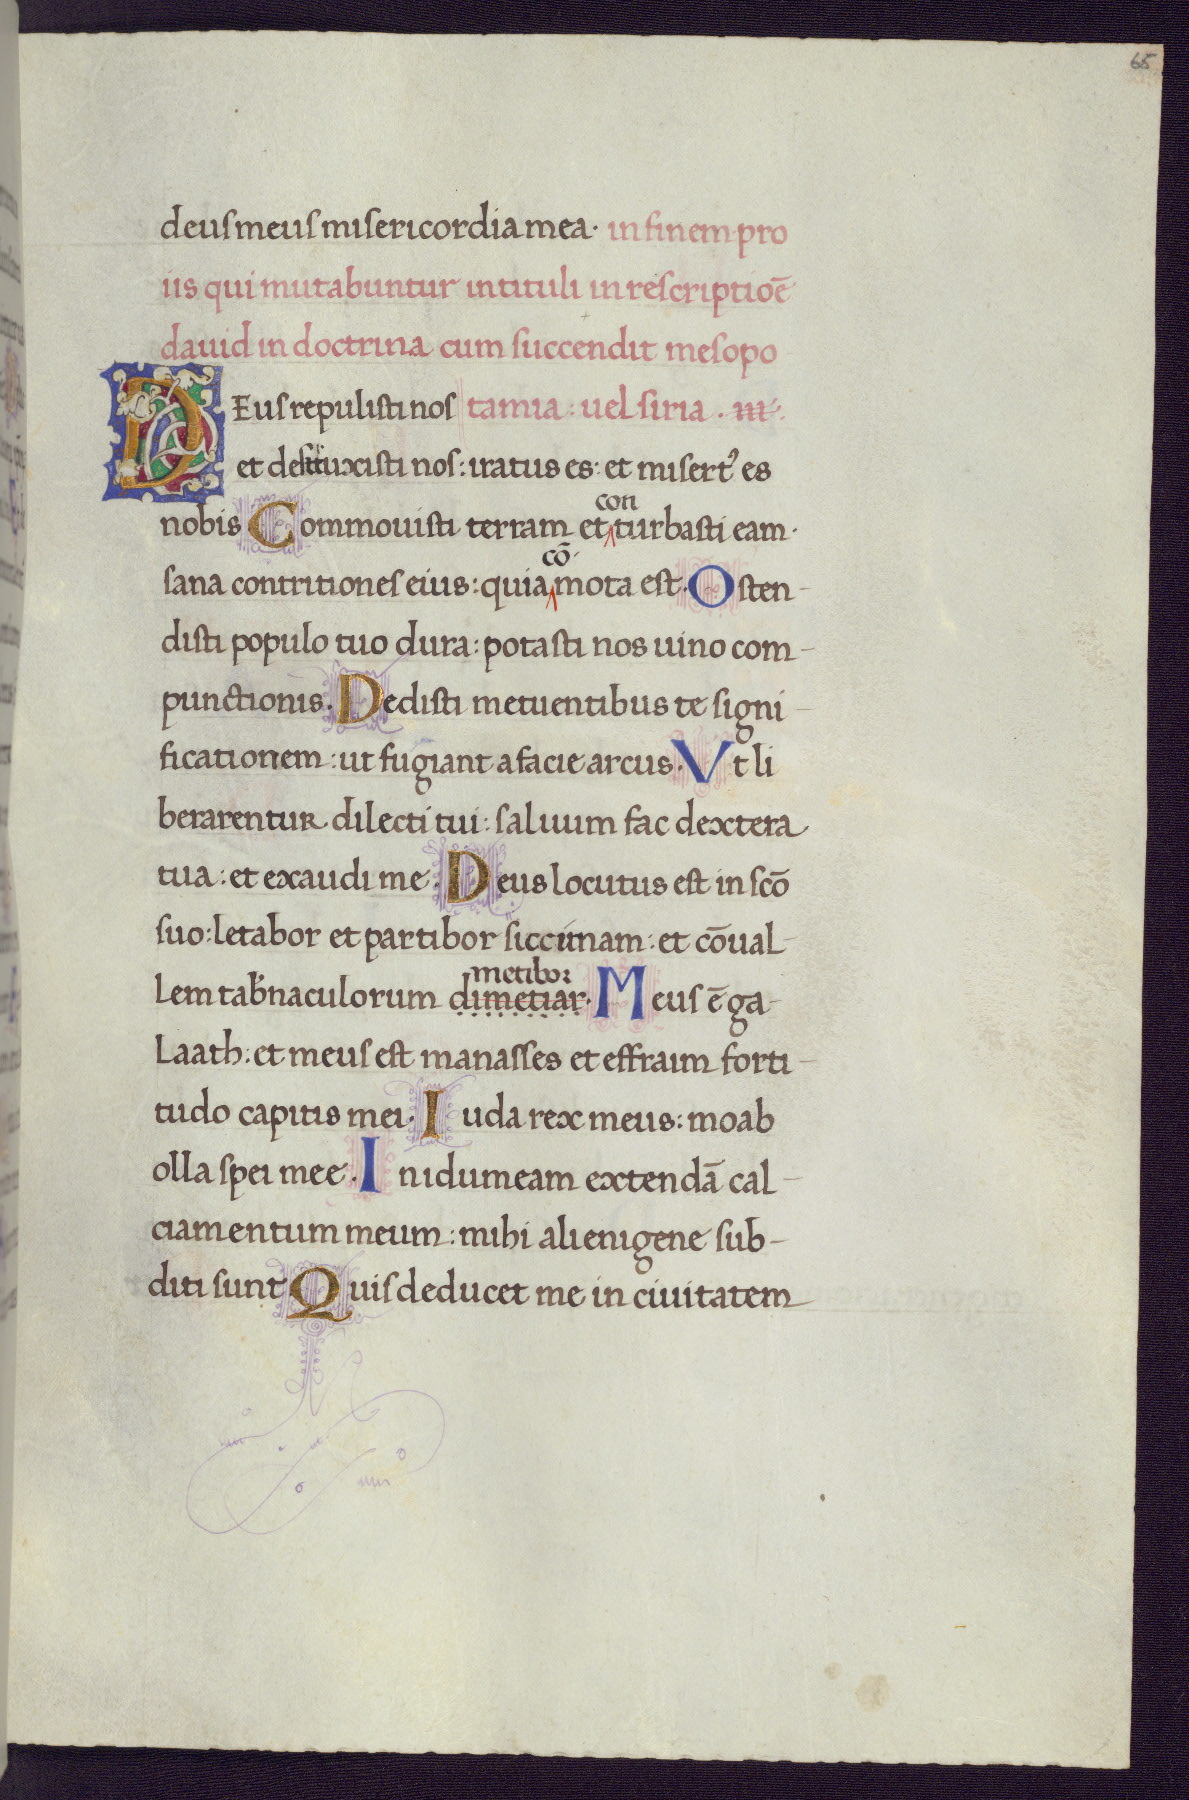 65
deus meus misericordia mea· in finem pro
iis qui mutabuntur in tituli in rescriptioē
dauid in doctrina cum succendit mesopo
DEus repulisti nos tamia: uel siria.
et destruxisti nos: iratus es: et misertꝰ es
con
nobis Commouisti terram et turbasti eam·
cō·
sana contritiones eius: quia mota est. Osten-
disti populo tuo dura: potasti nos uino com-
punctionis. Dedisti metuentibus te signi-
ficationem: ut fugiant a facie arcus. Vt li
berarentur dilecti tui: saluum fac dextera
tua: et exaudi me. Deus locutus est in scō
suo: letabor et partibor siccimam: et cōual-
metibor
lem tab̓naculorum dimetiar. Meus ē ga-
laath: et meus est manasses et effraim forti-
tudo capitis mei. Iuda rex meus: moab
olla spei mee. In idumeam extendā cal-
ciamentum meum: mihi alienigene sub-
diti sunt Quis deducet me in ciuitatem